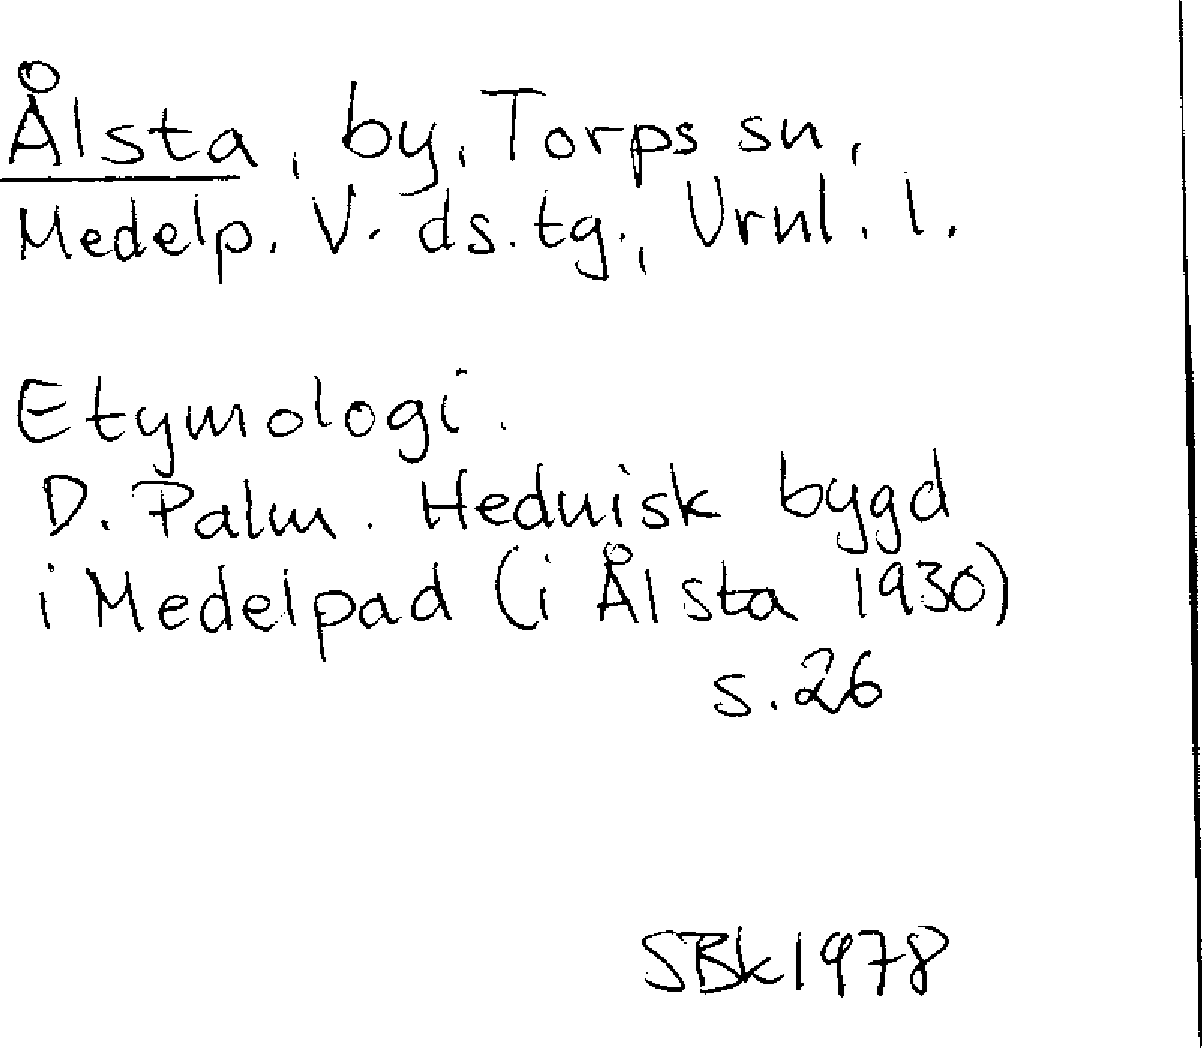 Ålsta, by, Torps sn,
Medelp. V. ds. tg., Vrnl. l.
Etymologi.
D. Palm. Hednisk bygd
i Medelpad (i Ålsta 1930)
s. 26
SBk 1978